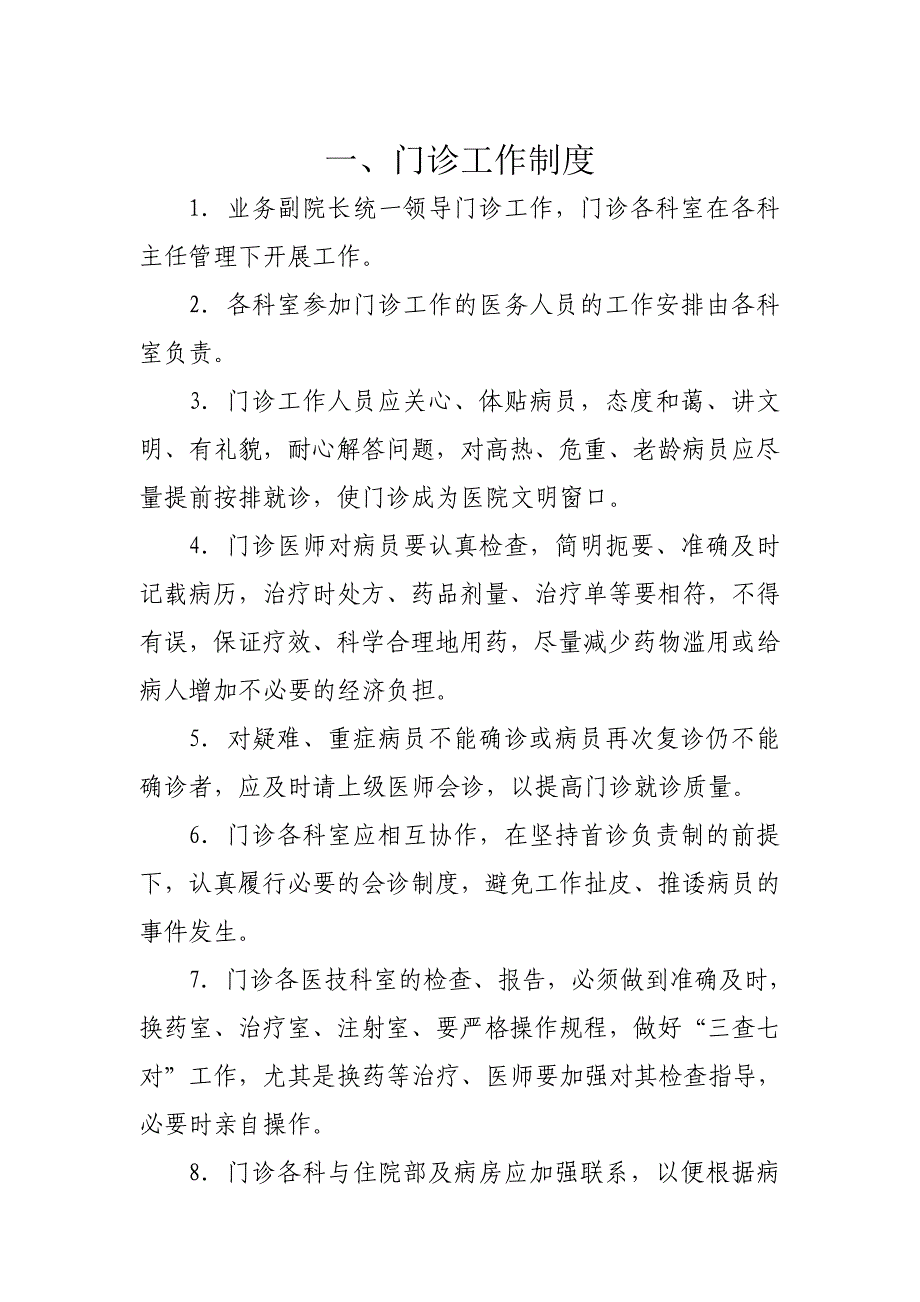 一、门诊工作制度
1．业务副院长统一领导门诊工作，门诊各科室在各科
主任管理下开展工作。
2．各科室参加门诊工作的医务人员的工作安排由各科
室负责。
3．门诊工作人员应关心、体贴病员，态度和蔼、讲文
明、有礼貌，耐心解答问题，对高热、危重、老龄病员应尽
量提前按排就诊，使门诊成为医院文明窗口。
4．门诊医师对病员要认真检查，简明扼要、准确及时
记载病历，治疗时处方、药品剂量、治疗单等要相符，不得
有误，保证疗效、科学合理地用药，尽量减少药物滥用或给
病人增加不必要的经济负担。
5．对疑难、重症病员不能确诊或病员再次复诊仍不能
确诊者，应及时请上级医师会诊，以提高门诊就诊质量。
6．门诊各科室应相互协作，在坚持首诊负责制的前提
下，认真履行必要的会诊制度，避免工作扯皮、推诿病员的
事件发生。
7．门诊各医技科室的检查、报告，必须做到准确及时，
换药室、治疗室、注射室、要严格操作规程，做好“三查七
对”工作，尤其是换药等治疗、医师要加强对其检查指导，
必要时亲自操作。
8．门诊各科与住院部及病房应加强联系，以便根据病